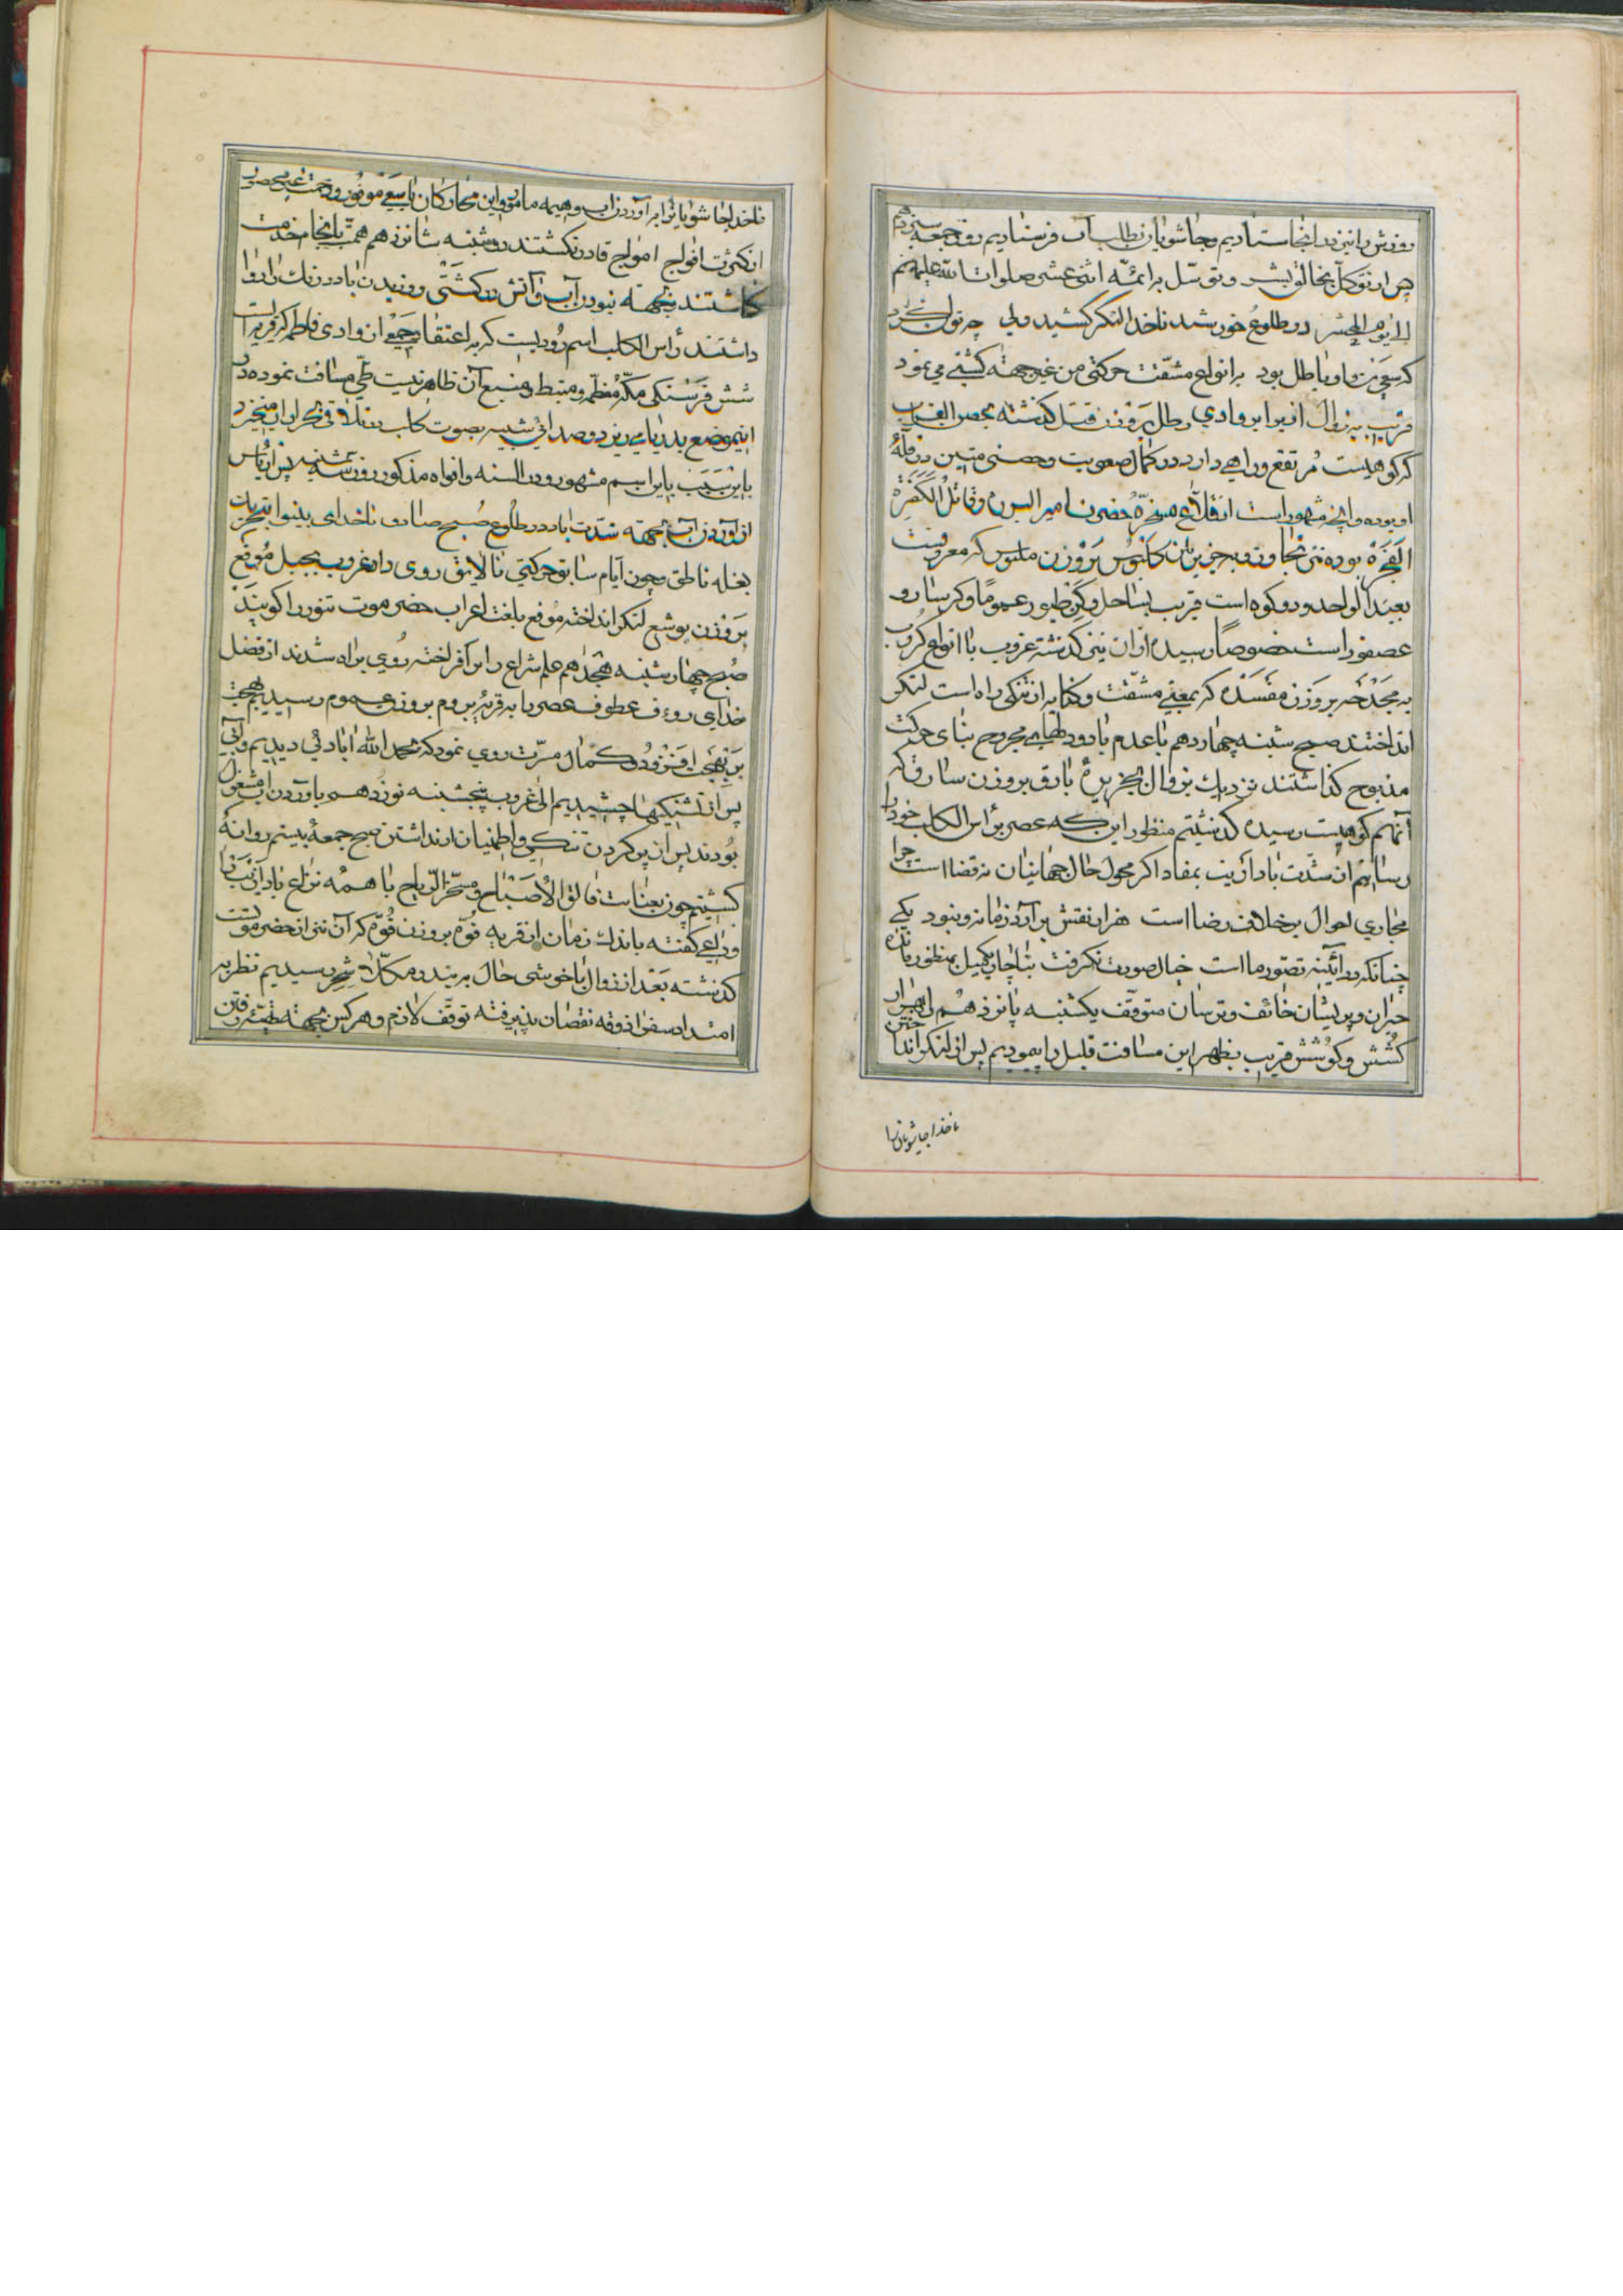 روزش را نیز در اینجا استادیم و جاشویان بطلب آب فرستادیم روز جمعه سیزدهم
پس از توکل بخالق بشر و توسّل برائمّه اثنی عشر صلوات الله علیهم
الی یوم المحشر در طلوع خورشید ناخدا لنکر کشید ولی چه توان کرد
که سعی من و او باطل بود برانواع مشقّت حرکتی من غیر جهة کشتی می نمود
قریب بزوال از برابر وادی رطل بروزن قبل کذشته بحصن الغراب
که کوهیست مُرتفع و راهی دارد در کمال صعوبت و حصنی متین در قلّهٔ
او بوده و آنچه مشهور است از قلاع مسخّرهٔ حضرت امیر البررة و قاتل الکَفَرَة
الفَجَرَة بوده نیز تجاوز و بجزیرتان کابُوس بروزن ملبوس که معروفست
بعبد الواحد و دو کوه است قریب بساحل و کز طیور عموماً وکرسا رو
عصفور است خصوصاً رسیده از ان نیز کذشته غروب با انواع کروب
به مجدْحَه بروزن مفسَده که بمعنی مشقّت و کنایه از تنکی راه است لنکر
انداختند صبح شنبه چهاردهم با عدم باد و دلهای مجروح بنای حرکت
مذبوح کذاشتند نزدیک بزوال بجزیرهٔ بارق بروزن سارق که
آنهم کوهیست رسیده کذشتیم منظور این که عصر برأس الکلب خود را
رسانیم از شدّت باد ازیب بمفاد اکر محول حال جهانیان نه قضا است چرا
مجاری احوال برخلاف رضا است هزار نقش برآرد زمانه و نبود یکی
چنانکه در آئینه تصوّر ما است خیال صورت نکرفت بناچار بکمیل منظور مانده
حیران و پریشان خائف و ترسان متوقّف یکشنبه پانزدهم با هزار
کُشش و کوُشش قریب بظهر این مسافت قلیل را پیمودیم پس از لنکر انداختن
ناخدا جاشویان را
ناخدا جاشویان را بر آوردن آب و هیمه مامور و این محارکان با سعی موفور و زحمت غیر محصور
از کثرت افواج امواج قادر نکشتند دوشنبه شانزدهم همّت بانجام خدمت
کاشتند بجهة نبودن آب و آتش در کشتی و وزیدن باد درنک را روا
داشتند رأس الکلب اسم رُودیست که به اعتقاد جمعی از وادی فاطمه که قریب است
شش فرسنکی مکّه معظّمه و منبط و منبع آن ظاهر نیست طیّ مسافت نموده در
اینموضع بدریا می ریزد و صدائی شبیه بصوت کلب در تلاقی بحر از او میخیزد
باین سَبَب باین اسم مشهور و در السنه و افواه مذکور روز سه شنبه پس از یاس
از آوردن آب بجهة شدّت باد در طلُوع صُبح صادق ناخدای بینوا بتحریک
بغله ناطق چون ایام سابق حرکتی نالایق روی داد غروب بجبل مُوقع
بروزن یوشع لنکر انداختند مُوقع بلغت اعراب حضر موت تنور را کویند
صُبح چهارشنبه هجدهم علم شراع را برافراخته روی براه شدند از فضل
خدای رءوف عطوف عصر را به قریهٔ بروم بروزن عموم رسیدیم بهجت
بر بهجت افزود و کمال مسرّت روی نمود که بحمد الله آبادئی دیدیم و آبی
پس از تشنکیها چشیدیم الی غروب پنجشنبه نوزدهم باوردن آب مشغول
بُودند پس از پر کردن تنکی و اطمینان از نداشتن صبح جمعهٔ بیستم روانهٔ
کشتیم چون بعنایت فالق الاصباح و مسخّر الریاح با همه نزاع باد ازیب با ما
وداعی کفته باندک زمان از قریه فُوّه بروزن قُوّه که آن نیز از حضر موتست
کذشته بَعد از زوال با خوشی حال به بندر مکلّا شحر رسیدیم نظر به
امتداد سفر آذوقه نقصان پذیرفته توقّف لازم و هر کس بجهة تهیّه رفتن